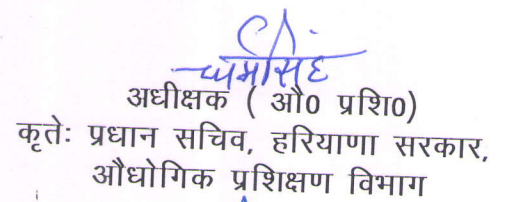 धर्मसिंह
अधीक्षक ( औ0 प्रशि0)
कृतेः प्रधान सचिव, हरियाणा सरकार,
औधोगिक प्रशिक्षण विभाग